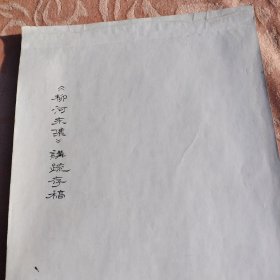 《柳河东集》講疏存稿